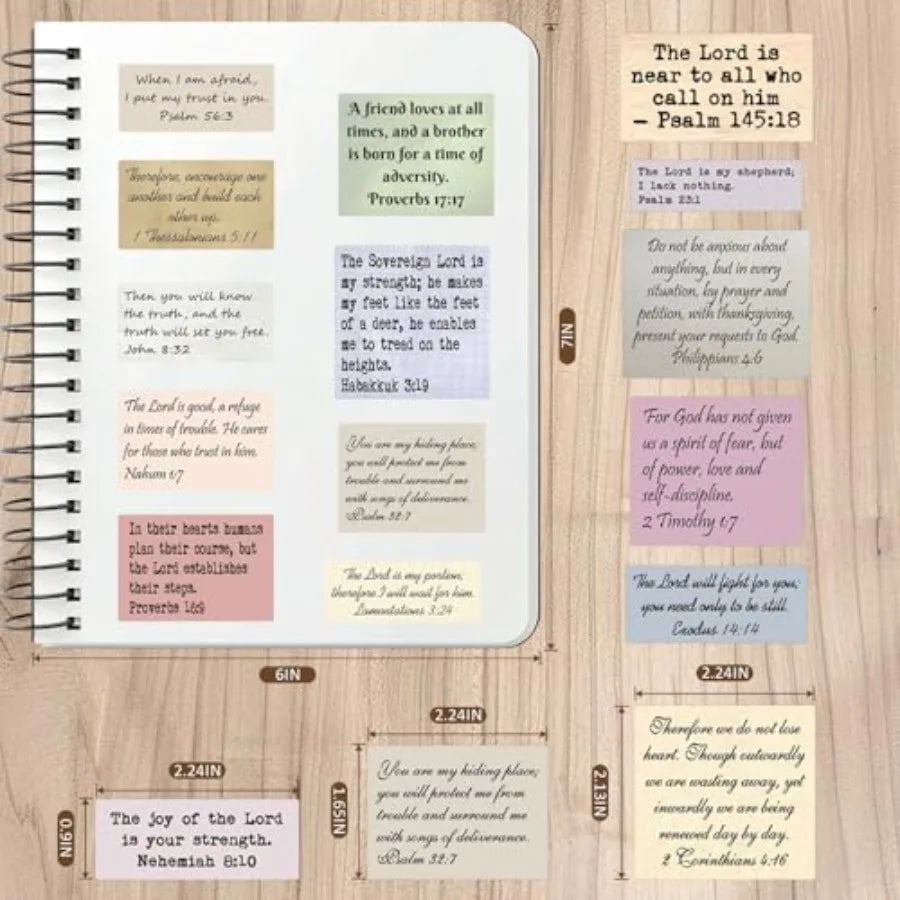 When I am afraid,
I put my trust in you.
Psalm 56:3
Therefore, encourage one
another and build each
other up.
1 Thessalonians 5:11
Then you will know
the truth, and the
truth will set you free.
John 8:32
The Lord is good, a refuge
in times of trouble. He cares
for those who trust in him.
Nahum 1:7
In their hearts humans
plan their course, but
the Lord establishes
their steps.
Proverbs 16:9
A friend loves at all
times, and a brother
is born for a time of
adversity.
Proverbs 17:17
The Sovereign Lord is
my strength; he makes
my feet like the feet
of a deer, he enables
me to tread on the
heights.
Habakkuk 3:19
You are my hiding place;
you will protect me from
trouble and surround me
with songs of deliverance.
Psalm 32:7
The Lord is my portion;
therefore I will wait for him.
Lamentations 3:24
The Lord is
near to all who
call on him
– Psalm 145:18
The Lord is my shepherd;
I lack nothing.
Psalm 23:1
Do not be anxious about
anything, but in every
situation, by prayer and
petition, with thanksgiving,
present your requests to God.
Philippians 4:6
For God has not given
us a spirit of fear, but
of power, love and
self-discipline.
2 Timothy 1:7
The Lord will fight for you;
you need only to be still.
Exodus 14:14
7IN
6IN
2.24IN
0.9IN
The joy of the Lord
is your strength.
Nehemiah 8:10
2.24IN
1.65IN
You are my hiding place;
you will protect me from
trouble and surround me
with songs of deliverance.
Psalm 32:7
2.24IN
2.13IN
Therefore we do not lose
heart. Though outwardly
we are wasting away, yet
inwardly we are being
renewed day by day.
2 Corinthians 4:16